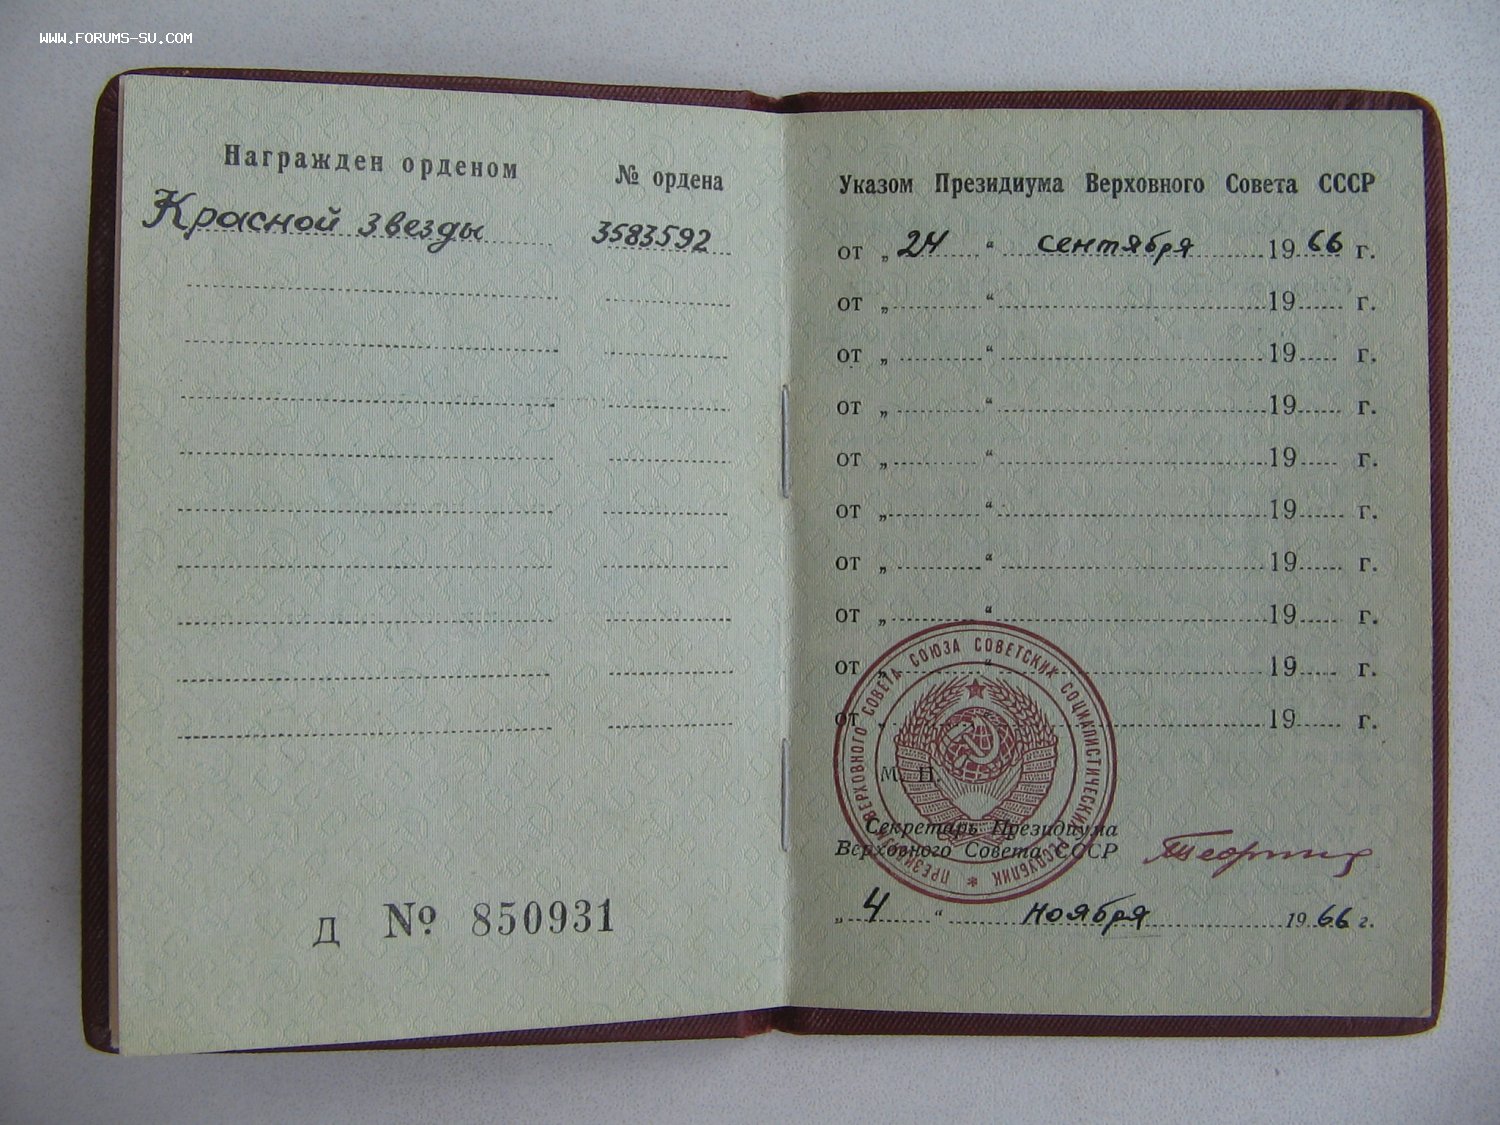 www.forums-su.com
Награжден орденом № ордена
Красной звезды 3583592
Д № 850931
Указом Президиума Верховного Совета СССР
от „24“ сентября 1966 г.
от „ “ 19 г.
от „ “ 19 г.
от „ “ 19 г.
от „ “ 19 г.
от „ “ 19 г.
от „ “ 19 г.
от „ “ 19 г.
от „ “ 19 г.
от „ “ 19 г.
ПРЕЗИДИУМ ВЕРХОВНОГО СОВЕТА СОЮЗА СОВЕТСКИХ СОЦИАЛИСТИЧЕСКИХ РЕСПУБЛИК
М. П.
Секретарь Президиума
Верховного Совета СССР
„4“ ноября 1966 г.